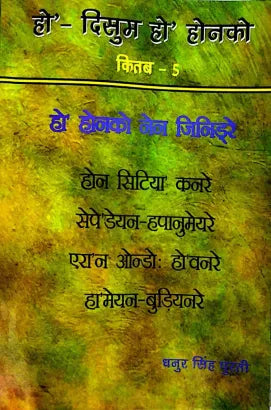 हो'- दिसुम हो' होनको
कितब - 5
हो' होनको नेन जिनिड्रे
होन सिटिया' कनरे
सेपे'डेयन-हपानुमेयरे
एरा'न ओन्डो: हो'वनरे
हा'मेयन-बुड़ियनरे
धनुर सिंह पुरती